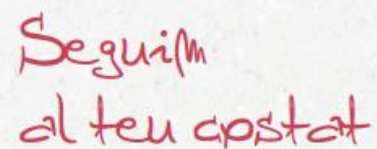 Seguim
al teu costat